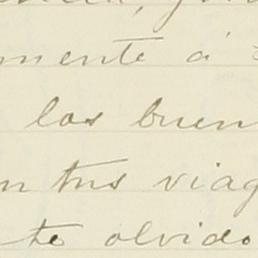 mente á
las buen
n tus viag
te olvido